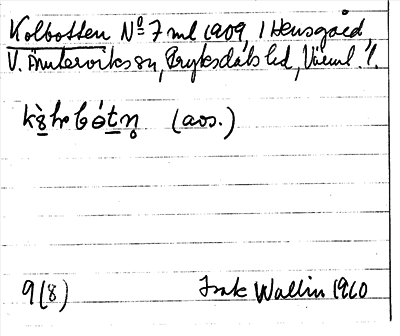 Kolbotten Nº 7 ml 1909, i Hensgård,
V. Ämterviks sn, Fryksdals hd, Värml. l.
(aos.)
9(8) Isak Wallin 1960